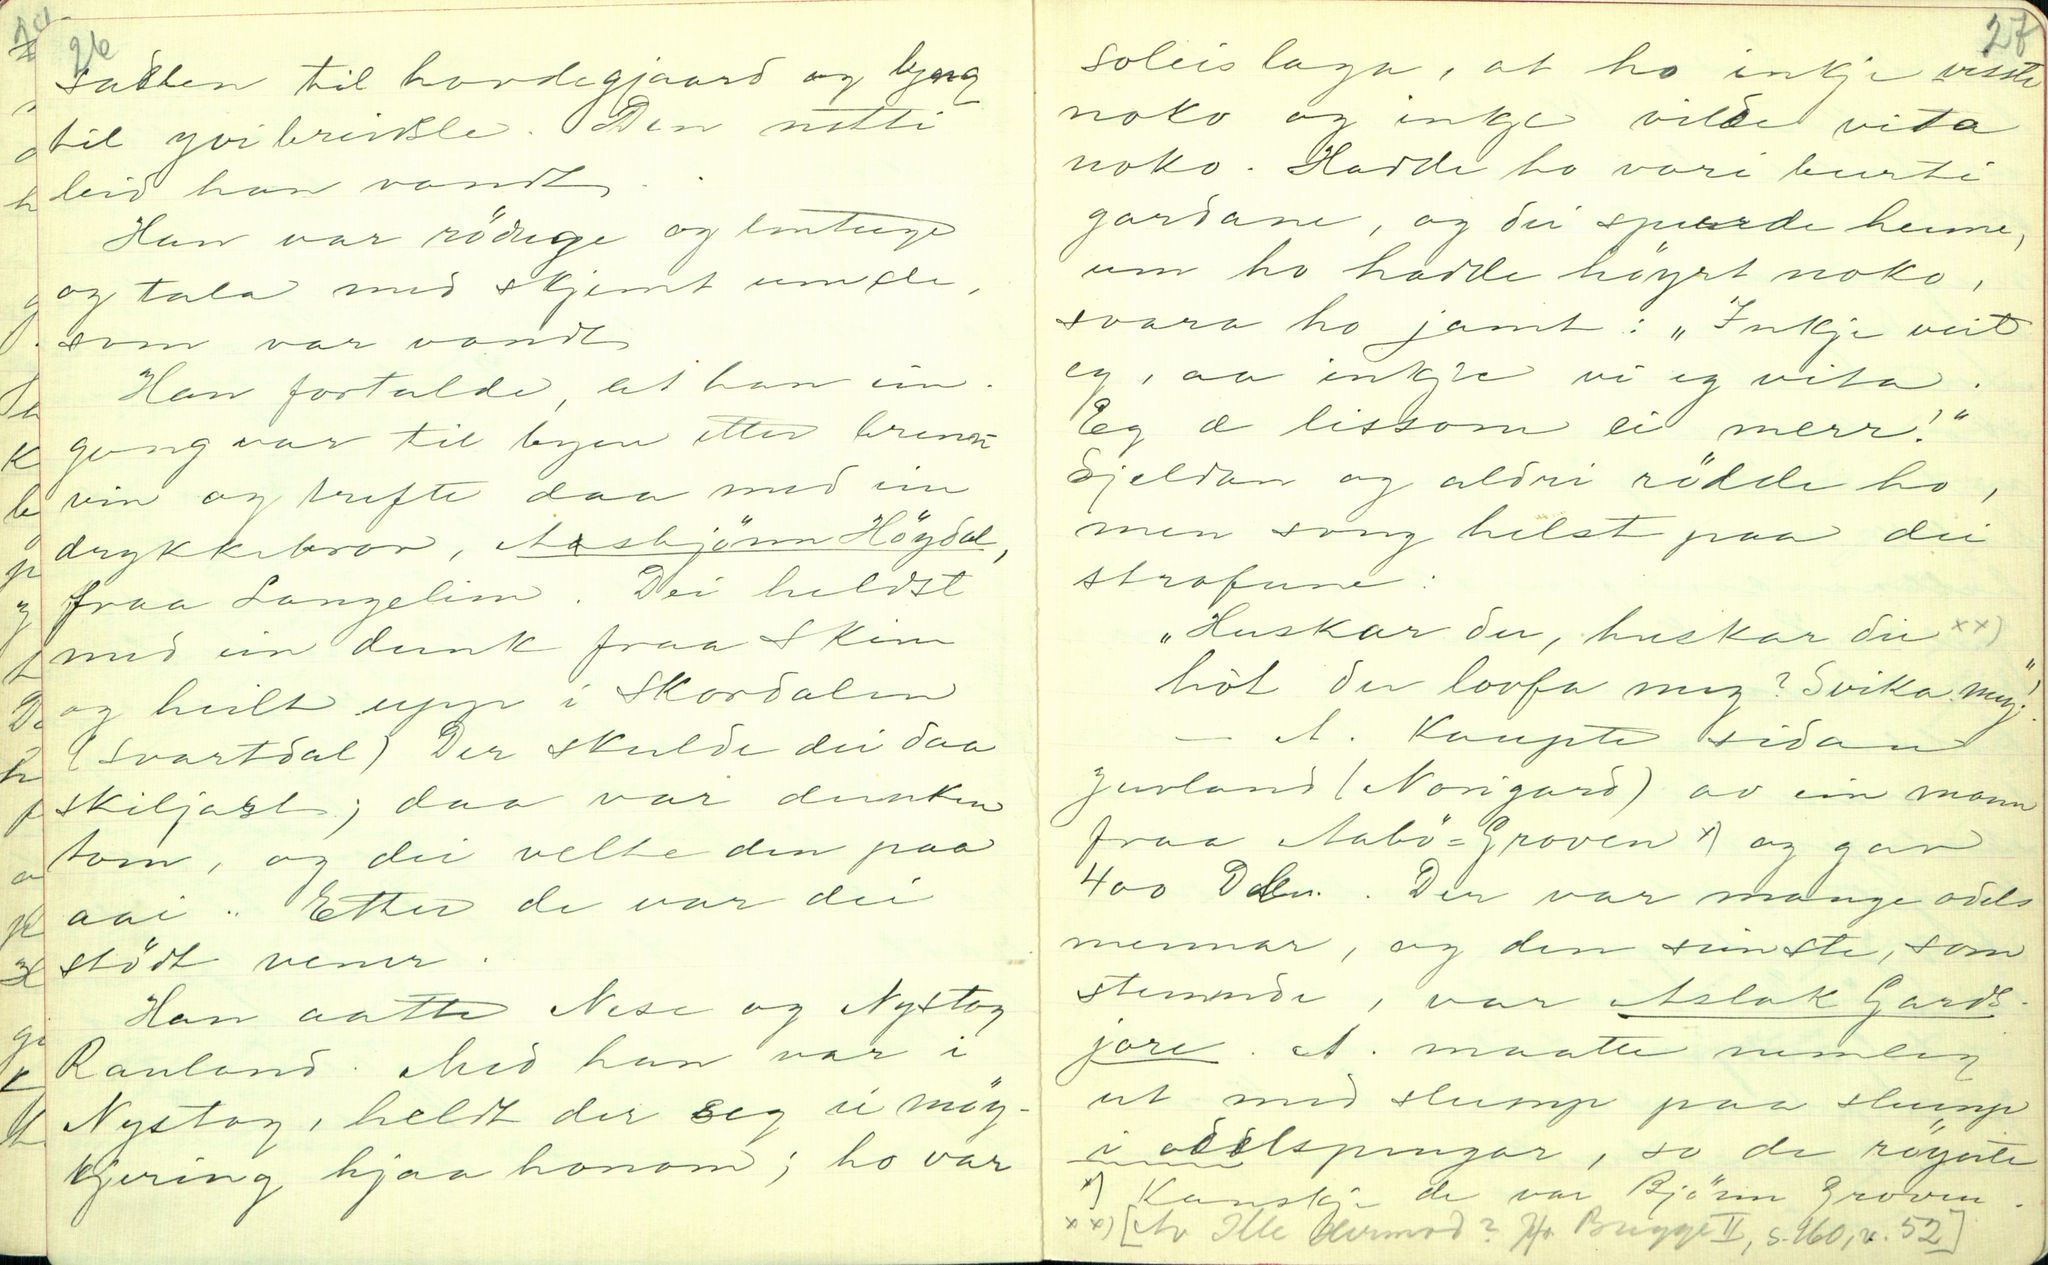 26
til hordegjaard og bygg
til yvibreidsle. Den netti
leid han vandt.
Han var rödug og
og tala med skjemt um de,
som var vandt
Han fortalde, at han ein-
gong var til byen etter brenne-
vin og trefte daa med ein
drykkebror, Aasbjönn Höydal,
fraa Langelim. Dei heldt
med ein dunk fraa Skien
og heilt upp i Skordalen
(Svartdal) Der skulde dei daa
skiljast; daa var dunken
tom, og dei velte den paa
aai. Etter de var dei
stödt vener.
Han aatte Nese og Nystog
Rauland. Med han var i
Nystog, heldt der seg ei möy-
kjering hjaa honom; ho var
27
soleis laga, at ho inkje visste
noko og inkje vilde vita
noko. Hadde ho vori burti
gardane, og dei spurde heime,
um ho hadde höyrt noko,
svara ho jamt: „Inkje veit
eg, aa inkje vi eg vita.
Eg æ lissom ei merr!“
Sjeldan og aldri rödde ho,
men song helst paa dei
strofune:
„Huskar du, huskar du xx)
höt du lovfa meg? Svika meg!“
— A. Kaupte sidan
Jurland (Norigard) av ein mann
fraa Aabö-Groven x) og gav
400 Dlr. Der var mange odels
mennar, og den seinste, som
stemnde, var Aslak Gards-
jore. A. maatte nemleg
ut med slump paa slump
i odelspengar, so de röynte
x) Kanskje de var Björnn Groven.
xx) [Av Ille Hermod? Jfr. Bugge II, s. 160, v. 52]